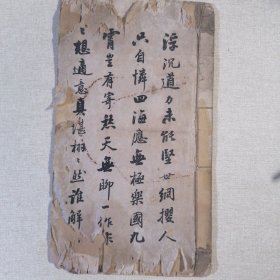 浮沉道力未能坚世網攖人
只自憐四海應無極樂國九
霄豈有寄愁天無聊一作
想適意真堪栩栩然誰解